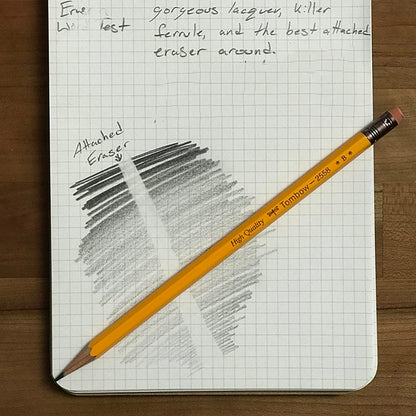 gorgeous lacquer, killer
Test ferrule, and the best attached
eraser around.
Attached
Eraser
High Quality Tombow — 2558 * B *